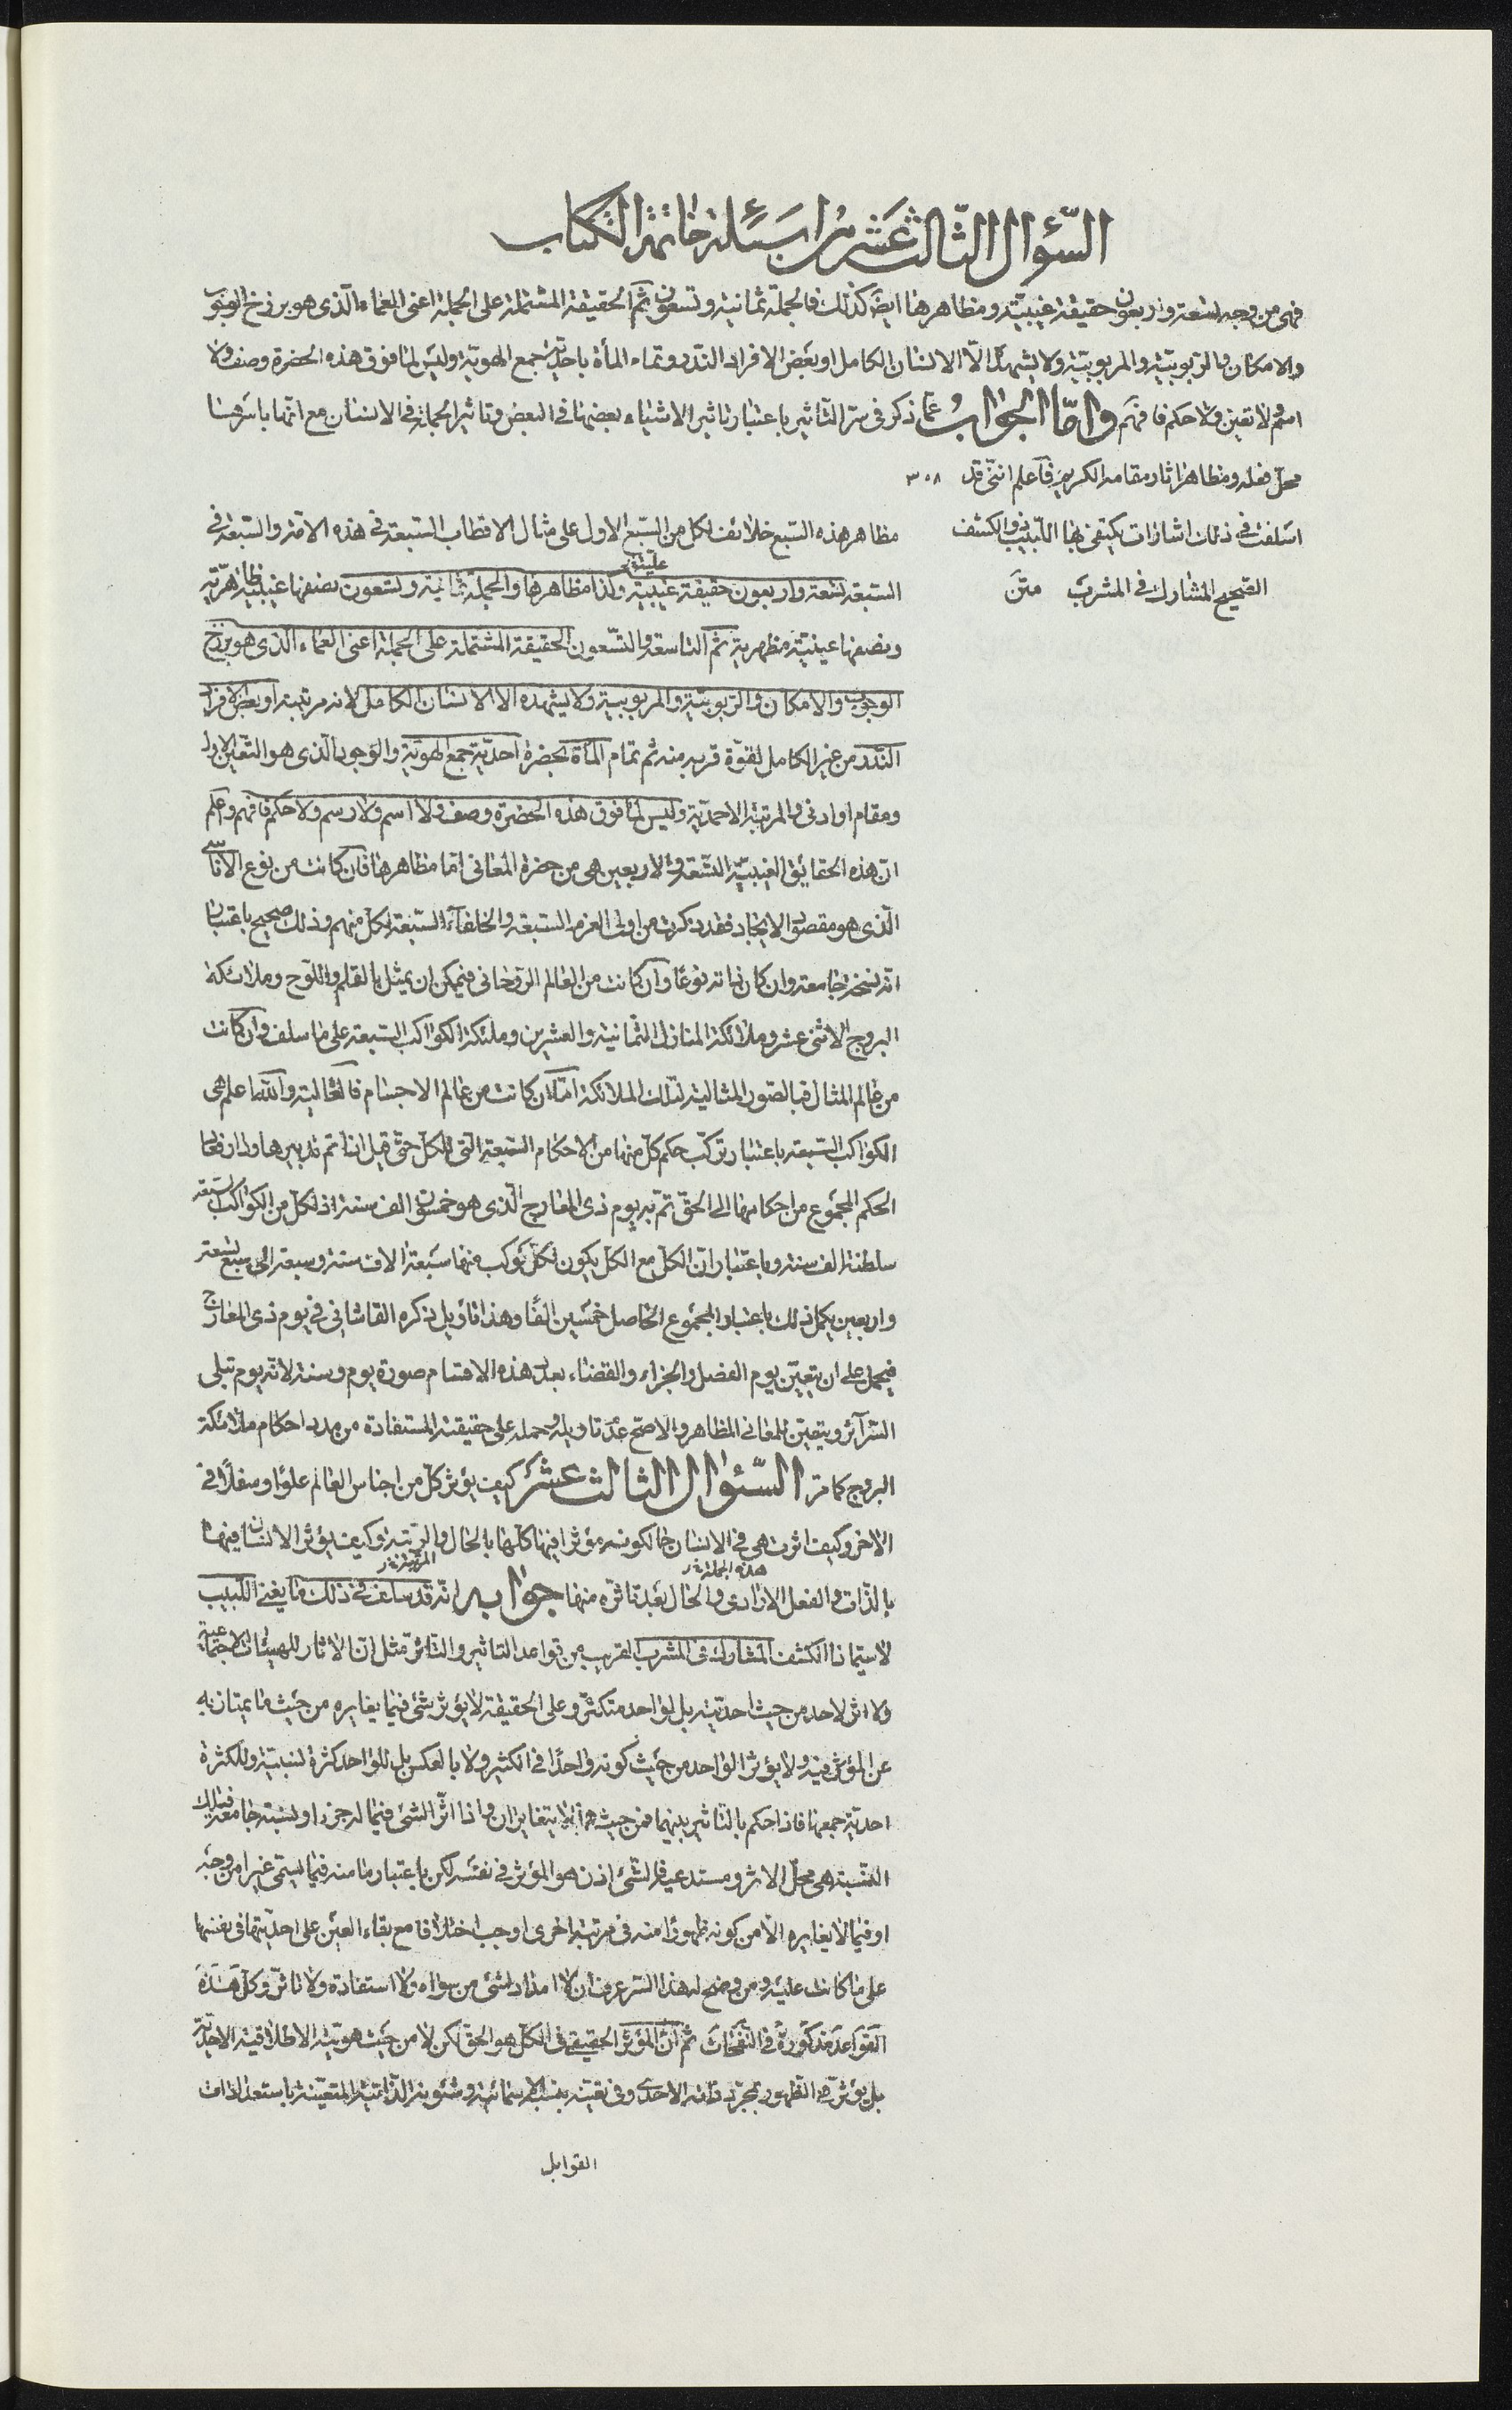 السّؤال الثّالث عشر من اسئلة خاتمة الكتاب
فهى من وجه تسعة واربعون حقيقة غيبيّة ومظاهرها ايضًا كذلك فالجملة ثمانية وتسعون ثم الحقيقة المشتملة على الجملة اعنى العماء الّذى هو برزخ الوجوب
والامكان والربوبيّة والمربوبيّة ولا يشهده الّا الانسان الكامل او بعض الافراد الندّر وتمام المأة باحديّة جمع الهويّة وليس لما فوق هذه الحضرة وصف ولا
اسم ولا تعين ولا حكم فافهم وامّا الجواب عمّا ذكر فى سرّ التّاثير باعتبار تاثير الاشياء بعضها فى البعض وتاثير الجملة فى الانسان مع انّها باسرها
محلّ فعله ومظاهر اثار مقامه الكريم فاعلم انّنى قد ٣٠٨
اسلفت فى ذلك اشارات يكتفى بها اللّبيب ذو الكشف
الصّحيح المشارك فى المشرب متن
مظاهر هذه السّبع خلائف لكل من السّبع الاول على مثال الاقطاب السّبعة فى هذه الامّة والسّبعة فى
السّبعة تسعة واربعون حقيقة غيبيّة وكذا مظاهرها والجملة ثمانية وتسعون نصفها غيبيّة ظاهريّة
ونصفها عينيّة مظهرية ثم التاسعة والتسعون الحقيقة المشتملة على الجملة اعنى العماء الّذى هو برزخ
الوجوب والامكان والربوبيّة والمربوبية ولا يشهده الا الانسان الكامل لانه مرتبته او بعض الافراد
الندّر من غير الكامل لقوّة قربه منه ثم تمام المأة بحضرة احديّة جمع الهويّة والوجود الّذى هو التّعين الاول
ومقام او ادنى والمرتبة الاحمديّة وليس لما فوق هذه الحضرة وصف ولا اسم ولا رسم ولا حكم فافهم واعلم
ان هذه الحقايق الغيبيّة التسعة والاربعين هى من حضرة المعانى امّا مظاهرها فان كانت من نوع الاناسى
الّذى هو مقصود الايجاد فقد ذكرت من اولى العزم السّبعة والخلفاء السّبعة لكل منهم وذلك صحيح باعتبار
انّه نسخة جامعة وان كان بذاته نوعًا وان كانت من العالم الرّوحانى فيمكن ان يمثل بالقلم واللّوح وملائكة
البروج الاثنى عشر وملائكة المنازل الثمانية والعشرين وملئكة الكواكب السّبعة على ما سلف وان كانت
من عالم المثال فبالصّور المثالية لتلك الملائكة امّا ان كانت من عالم الاجسام فالله اعلم هى
الكواكب السّبعة باعتبار تركّب حكم كل منها من الاحكام السّبعة التى للكل حتى قيل انما تم تدبيرها وارتفاع
الحكم المجموع من احكامها الى الحقّ تم به يوم ذى المعارج الّذى هو خمسون الف سنة اذ لكل من الكواكب سبعة
سلطنة الف سنة وباعتبار انّ الكل مع الكل يكون لكل كوكب منها سبعة الاف سنة وسبعة فى سبع تسعة
واربعين يكمل ذلك باعتبار المجموع الحاصل خمسين الفًا وهذا تأويل ذكره القاشانى فى يوم ذى المعارج
فيحمل على ان يتعيّن يوم الفصل والجزاء والقضاء بعد هذه الاقسام صورة يوم وسنة لانه يوم تبلى
السّرآئر ويتعيّن للمعانى المظاهر والاصح عدم تاويله وحمله على حقيقته المستفادة من مدد احكام ملائكة
البروج كما مرّ السّئوال الثالث عشر كيف يؤثر كل من اجناس العالم علوًا وسفلًا فى
الاخر وكيف اثرت هى فى الانسان حال كونه مؤثرا فيها كلها بالحال والرّتبة وكيف يؤثر الانسان فيها
بالذّات والفعل الارادى والحال بعد تاثره منها جوابه انّه قد سلف فى ذلك ما يغنى اللّبيب
لا سيّما ذا الكشف المشارك فى المشرب القريب من قواعد التاثير والتاثر مثل ان الاثار للهيئات الاجتماعية
ولا اثر لاحد من حيث احديّته بل لواحد متكثّر وعلى الحقيقة لا يؤثر شئ فيما يغايره من حيث ما يمتاز به
عن المؤثر فيه ولا يؤثر الواحد من حيث كونه واحدًا فى الكثير ولا بالعكس بل للواحد كثرة نسبيّة وللكثرة
احديّة جمعها فاذا حكم بالتّاثير بينهما فمن حيث لا يتغايران واذا اثّر الشئ فيما له جزء او نسبة جامعة فتلك
النّسبة هى محلّ الاثر ومستدعيه فالشّئ اذن هو المؤثر فى نفسه لكن باعتبار ما منه فيما يسمى غيرا من وجه
او فيما لا يغايره الّا من كونه ظهورا منه فى مرتبة اخرى اوجب اختلافا مع بقاء العين على احديّتها فى نفسها
على ما كانت عليه ومن وضح له هذا السّر عرف ان لا امداد لشئ من سواه ولا استفادة ولا تاثر وكل هذه
القواعد مذكورة فى النّفحات ثم انّ المؤثر الحقيقى فى الكل هو الحقّ لكن لا من حيث هويّته الاطلاقية الاحديّة
بل يؤثر فى الظهور بمجرّد ذاته الاحدى وفى تعيّنه بنسبه الاسمائية وشئونه الذّاتيّة المتعيّنة باستعدادات
القوابل